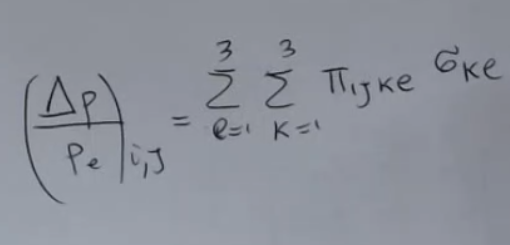 (Δρ/ρe)i,j = Σ_{e=1}^{3} Σ_{k=1}^{3} π_{ijke} σ_{ke}